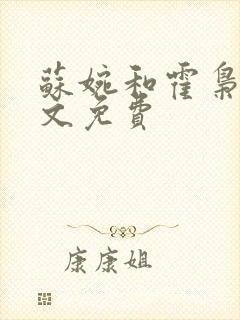 蘇婉和霍梟
文免費
康康姐